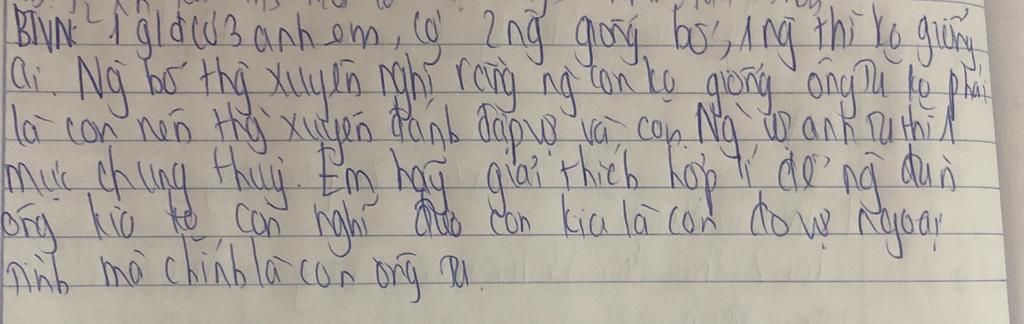 BTVN: 1 gđ có 3 anh em, có 2 ng̃ giống bố, 1 ng̃ thì ko giống
ai. Ng̃ bố thg̀ xuyên nghĩ rằng ng̃ con ko giống ông ta ko phải
là con nên thg̀ xuyên đánh đập vợ và con. Ng̃ vợ anh ta thì 1
mực chung thuỷ. Em hãy giải thích hợp lí để ng̃ đàn
ông kia ko còn nghĩ đứa con kia là con do vợ ngoại
tình mà chính là con ông ta.